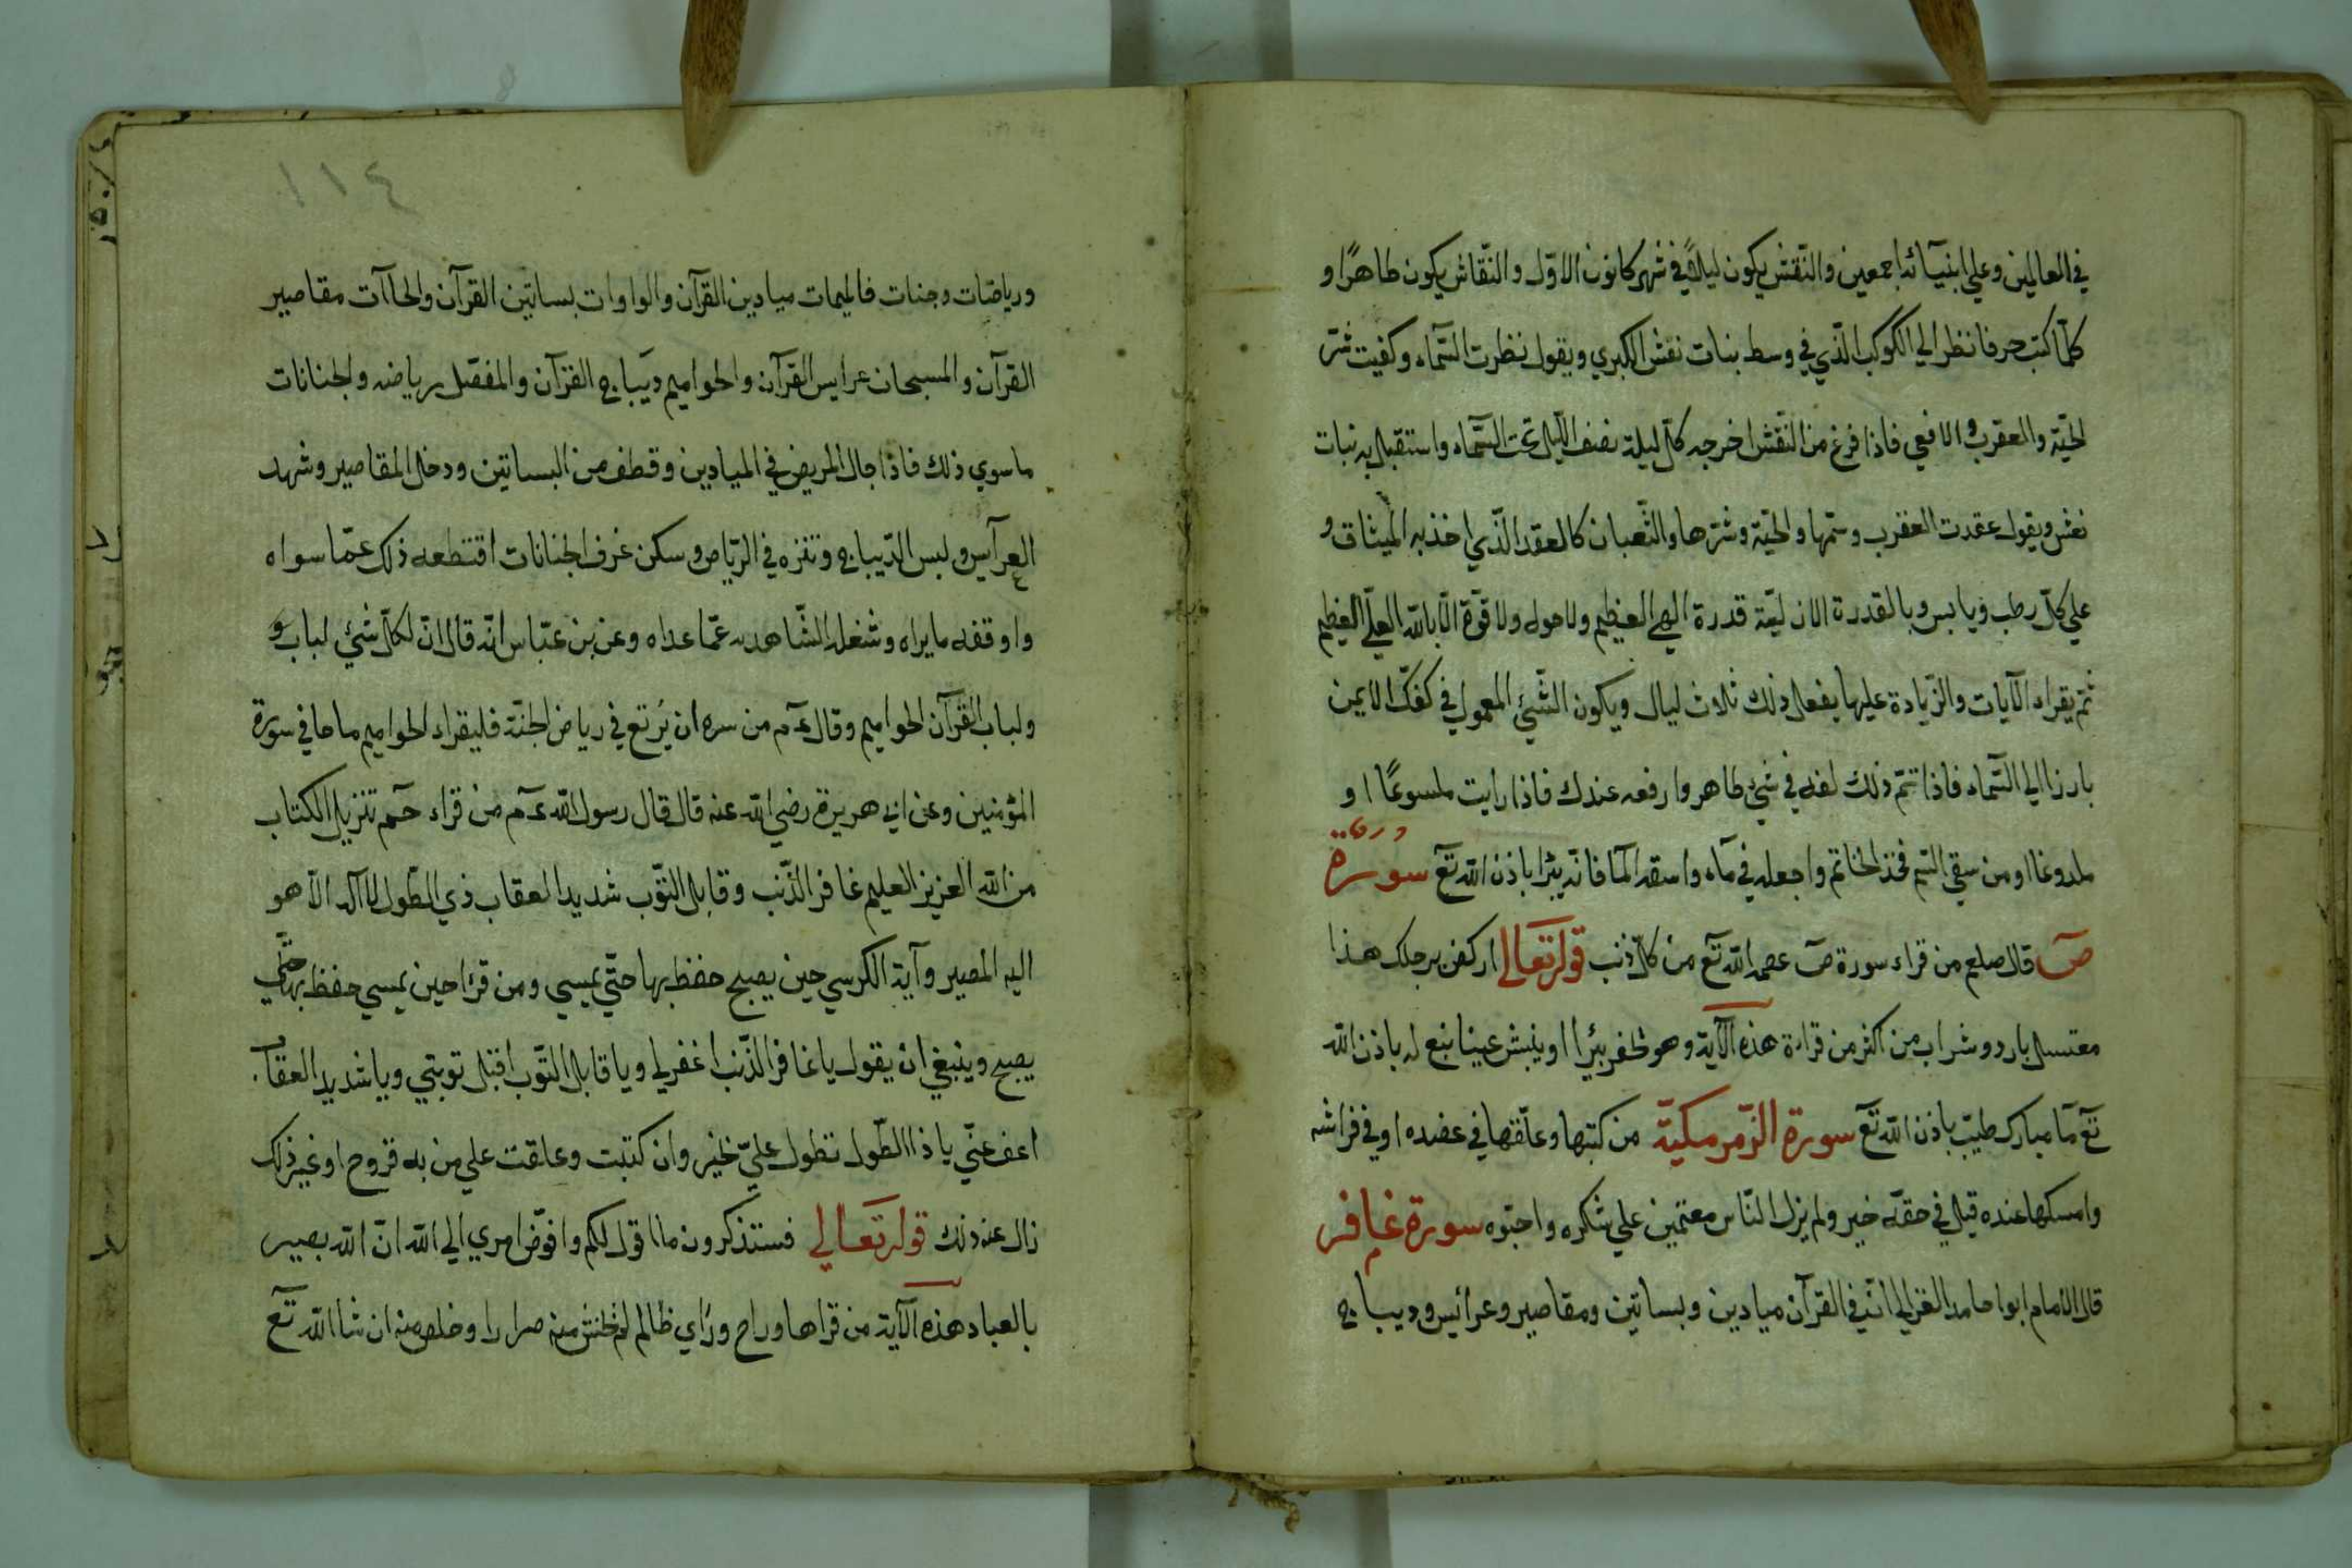 في العالمين وعلي انبيآئه اجمعين والنّقش يكون ليلاً في شهر كانون الاوّل والنّقاش يكون طاهرًا و
كلّما كتب حرفا نظر الي الكوكب الّذي في وسط بنات نعش الكبري ويقول نظرت السّمآء وكفيت شرّ
الحيّة والعقرب والافعي فاذا فرغ من النّقش اخرجه كلّ ليلة نصف اللّيل تحت السّمآء واستقبل به بنات
نعش ويقول عقدت العقرب وسمّها والحيّة وشرّها والثّعبان كالعقد الّذي اخذ به الميثاق و
علي كلّ رطب ويابس وبالقدرة الازليّة قدرة الهي العظيم ولا حول ولا قوّة الّا بالله العليّ العظيم
ثمّ يقراء الآيات والزّيادة عليها يفعل ذلك ثلاث ليال ويكون الشّيئ المعمول في كفّك الايمن
بارزا الي السّمآء فاذا تمّ ذلك لفه في شئ طاهر وارفعه عندك فاذا رايت ملسوعًا او
ملدوغا او من سقي السّم فخذ الخاتم واجعله في مآء واسقه المآ فانّه يبرا باذن الله تعٓ سورة
صٓ قال صلعم من قراء سورة صٓ عصمه الله تعٓ من كلّ ذنب قوله تعالي اركض برجلك هذا
مغتسل بارد وشراب من اكثر من قراءة هذه الآية وهو يحفر بئرا او ينبش عينا نبع له باذن الله
تعٓ مآ مبارك طيّب باذن الله تعٓ سورة الزّمر مكيّة من كتبها وعلّقها في عضده او في فراشه
وامسكها عنده قيل في حقّه خير ولم يزل النّاس مقيمين علي شكره واحبّوه سورة غافر
قال الامام ابوا حامد الغزالي انّ في القرآن ميادين وبساتين ومقاصير وعرائيس وديباج
١١٤
ورياضات وجنات فالميمات ميادين القرآن والواوات بساتين القرآن والحاآت مقاصير
القرآن والمسبحات عرايس القرآن والحواميم ديباج القرآن والمفصّل رياضه والجنانات
ما سوي ذلك فاذا جال المريض في الميادين وقطف من البساتين ودخل المقاصير وشهد
العرآيس ولبس الدّيباج وتنزه في الرّياض وسكن غرف الجنانات اقتطعه ذلك عمّا سواه
واوقفه ما يراه وشغله الشّاهد به عمّا عداه وعن بن عبّاس انّه قال انّ لكلّ شيئ لباب و
ولباب القرآن الحواميم وقال عٓم من سره ان يرتع في رياض الجنّة فليقراء الحواميم ماحا في سورة
المؤمنين وعن ابي هريرة رضي الله عنه قال قال رسول الله عٓم من قراء حٓم تنزيل الكتاب
من الله العزيز العليم غافر الذّنب وقابل التّوب شديد العقاب ذي الطّول لا اله الّا هو
اليه المصير وآية الكرسي حين يصبح حفظ بها حتّي يمسي ومن قرا حين يمسي حفظ بها حتّي
يصبح وينبغي ان يقول يا غافر الذّنب اغفر لي ويا قابل التّوب اقبل توبتي ويا شديد العقاب
اعف عنّي يا ذا الطّول تطول عليّ بخير وان كتبت وعلقت علي من به قروح او غير ذلك
زال عنه ذلك قوله تعالي فستذكرون ما اقول لكم وافوّض امري الي الله انّ الله بصير
بالعباد هذه الآية من قراها وراح وراي ظالم لم يخش منه ضرارا وخلص منه ان شا الله تعٓ